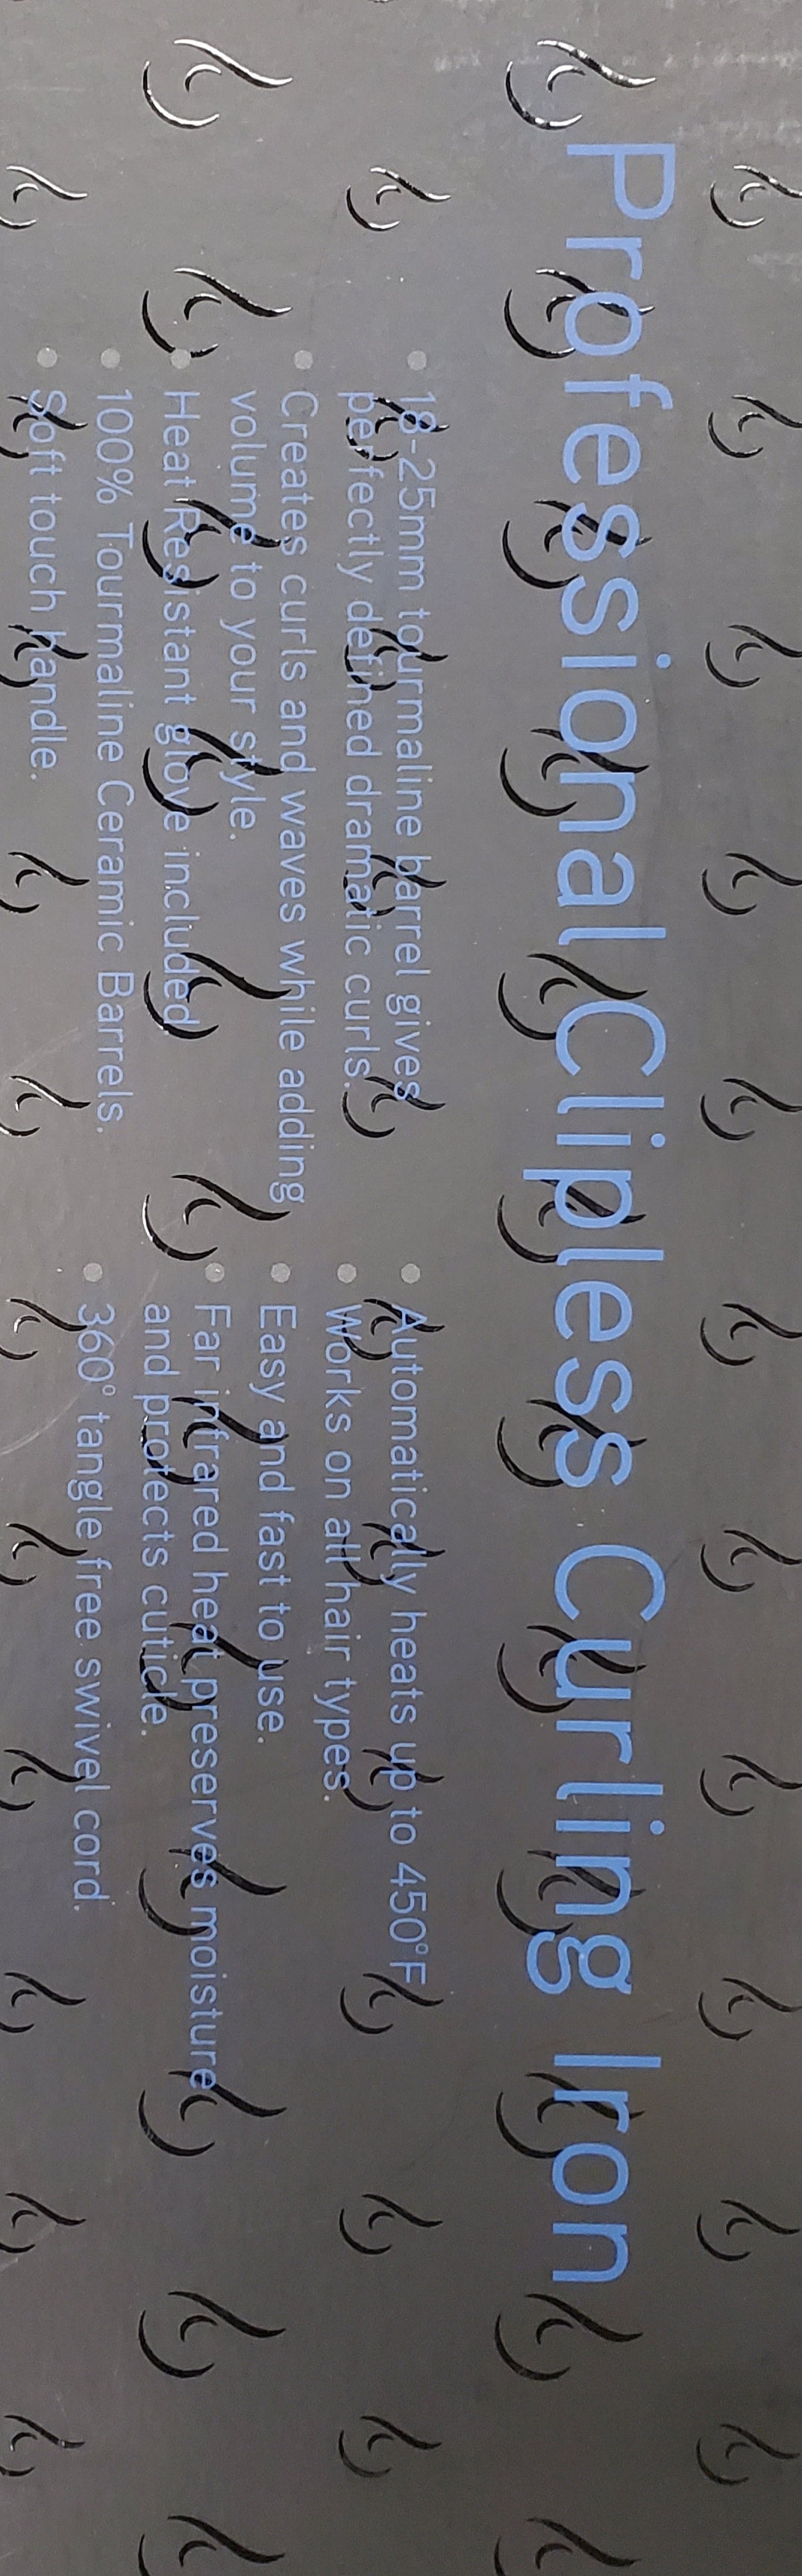 Professional Clipless Curling Iron
18-25mm tourmaline barrel gives
perfectly defined dramatic curls.
Creates curls and waves while adding
volume to your style.
Heat Resistant glove included.
100% Tourmaline Ceramic Barrels.
Soft touch handle.
Automatically heats up to 450°F
Works on all hair types.
Easy and fast to use.
Far infrared heat preserves moisture
and protects cuticle.
360° tangle free swivel cord.